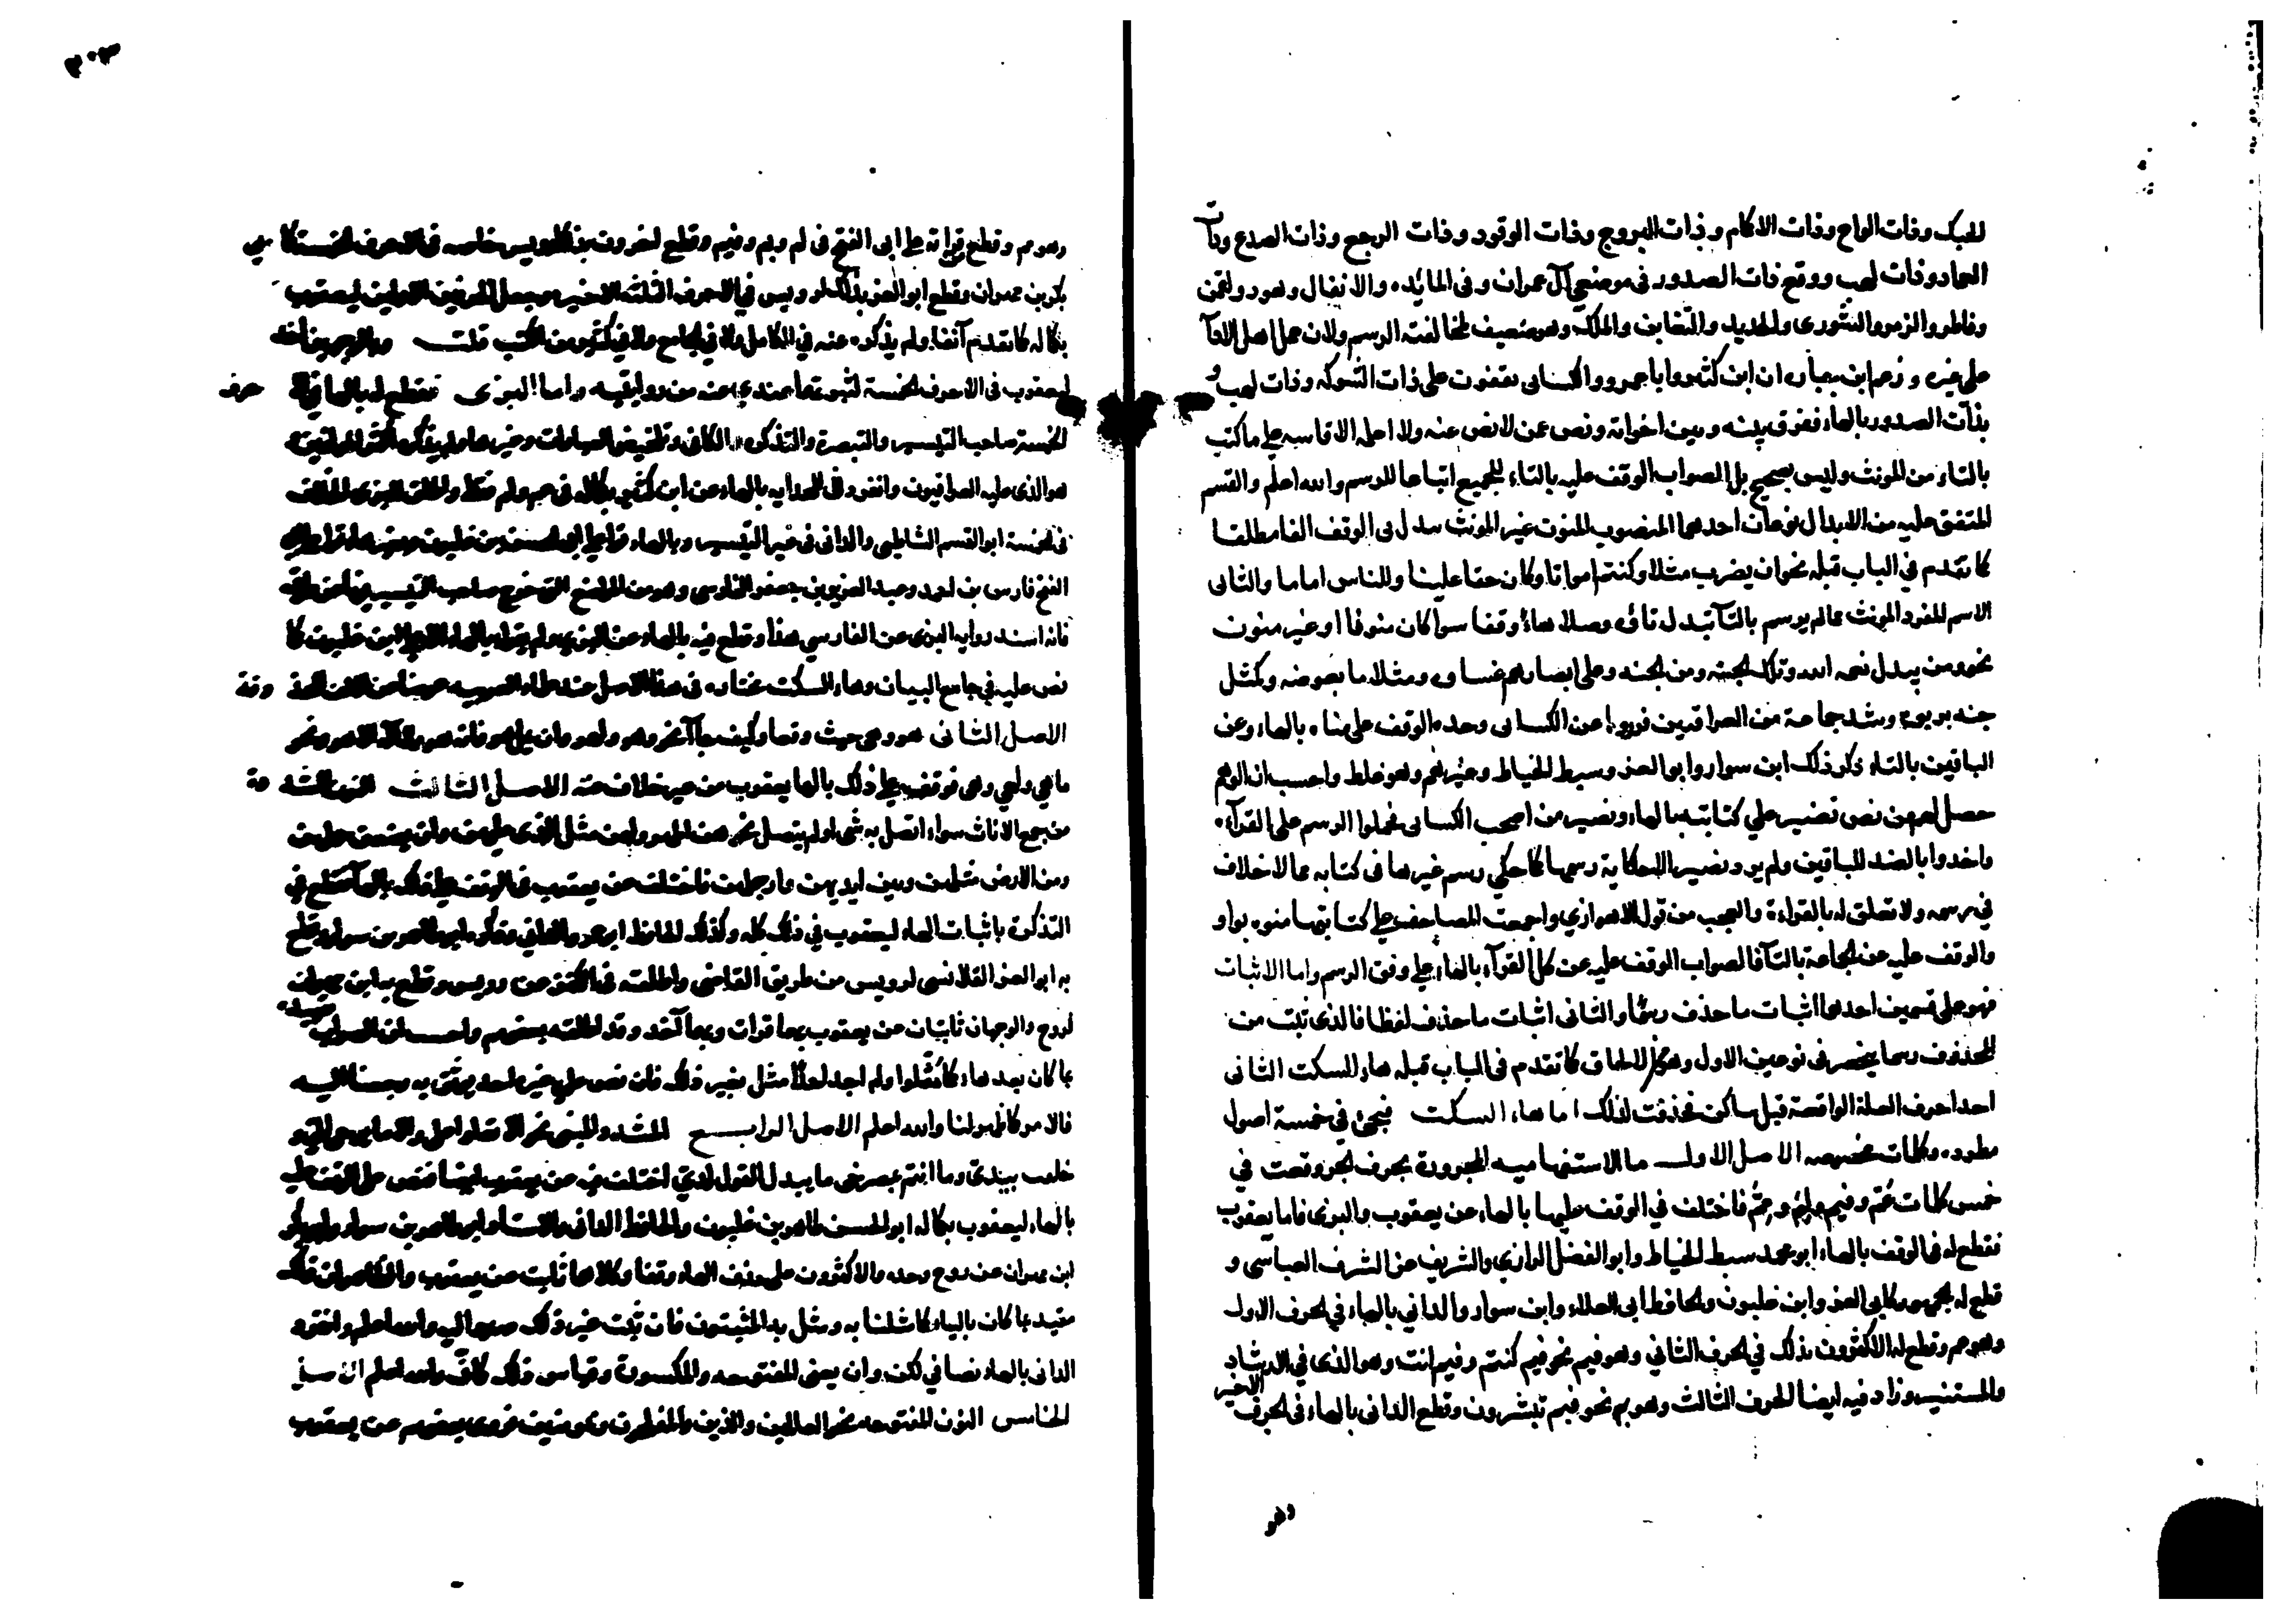 الحبك وذات الواح وذات الاكمام وذات البروج وذات الوقود وذات الرجع وذات الصدع وذات
العماد وذات لهب ووقع ذات الصدور في موضعي آل عمران وفي المائده والانفال وهود ولقمن
وفاطر والزمر والشورى والحديد والتغابن والملك وهو ضعيف لمخالفته الرسم ولان عمل اهل الادآ
على غيره وزعم ابن جباره ان ابن كثير وابا عمرو والكسائى يقفون على ذات الشوكه وذات لهب و
بذات الصدور بالهاء ففرق بينه وبين اخواته ونص عمن لا نص عنه ولا اعلمه الا قاسه على ما كتب
بالتاء من المونث وليس بصحيح بل الصواب الوقف عليه بالتاء للجميع اتباعا للرسم والله اعلم والقسم
المتفق عليه من الابدال نوعان احدهما المنصوب المنون غير المونث يبدل في الوقف الفا مطلقا
كما تقدم في الباب قبله نحو ان يضرب مثلا وكنتم امواتا وكان حقا علينا وللناس اماما والثانى
الاسم المفرد المونث ما لم يرسم بالتآ تبدل تاؤه وصلا هاء وقفا سوآ كان منونا او غير منون
نحو ومن يبدل نعمه الله وتلك الجنه ومن الجنه وعلى ابصارهم غشاوه ومثلا ما بعوضه وكمثل
جنه بربوه وشذ جماعة من العراقيين فرووا عن الكسائى وحده الوقف على مناه بالهاء وعن
الباقين بالتاء ذكر ذلك ابن سوار وابو العز وسبط الخياط وغيرهم وهو غلط واحسب ان الوهم
حصل لهم من نص نصير على كتابته بالهاء ونصير من اصحب الكسائى فحملوا الرسم على القرآءه
واخذوا بالضد للباقين ولم يرد نصير الا حكاية رسمها كما حكى رسم غيرها في كتابه مما لا خلاف
في رسمه ولا تعلق له بالقراءة والعجب من قول الاهوازي واجمعت المصاحف على كتابتها منوه بواو
والوقف عليه عن الجماعة بالتآ فالصواب الوقف عليه عن كل القرآء بالهاء على وفق الرسم واما الاثبات
فهو على قسمين احدهما اثبات ما حذف رسما والثانى اثبات ما حذف لفظا فالذى ثبت من
المحذوف رسما ينحصر في نوعين الاول وهو من الالحاق كما تقدم في الباب قبله هاء السكت الثانى
احد احرف العلة الواقعة قبل ساكن فحذفت لذلك اما هاء السكت فيجئ في خمسة اصول
مطرده وكلمات مخصوصه الاصل الاول ما الاستفهاميه المجرورة بحرف الجر وقعت في
خمس كلمات عم وفيم وبم ولم ومم فاختلف في الوقف عليها بالهاء عن يعقوب والبزى فاما يعقوب
فقطع له في الوقف بالهاء ابو محمد سبط الخياط وابو الفضل الرازي والشريف عن الشرف العباسى و
قطع له الجمهور كابى العز وابن غلبون والحافظ ابى العلاء وابن سوار والدانى بالهاء في الحرف الاول
وهو عم وقطع له الاكثرون بذلك في الحرف الثاني وهو فيم نحو فيم كنتم وفيم انت وهو الذى في الارشاد
والمستنير وزاد فيه ايضا الحرف الثالث وهو بم نحو فبم تبشرون وقطع الدانى بالهاء في الحرف الاخير
وهو
وهو مم وقطع قراته على ابى الفتح في لم وبم وفيم وقطع اخرون بذلك لرويس خاصه في الاحرف الخمسة كابى
بكر بن مهران وقطع ابو العز بذلك لرويس في الاحرف الثلثه الاخيره وجعل الحرفين الاولين ليعقوب
بكماله كما تقدم آنفا ولم يذكره عنه في الكامل ولا في الجامع ولا في كثير من الكتب قلت وبالوجهين اخذ
ليعقوب في الاحرف الخمسة لثبوتهما عندي عنه من روايتيه واما البزى فقطع له بالهاء في الاحرف
الخمسة صاحب التيسير والتبصرة والتذكره والكافى وتلخيص العبارات وغيرها ولم يذكره اكثر المولفين
هو الذى عليه العراقيون وانفرد في الهدايه بالهاء عن ابن كثير بكماله في عم ولم فقط واطلق للبزى الخلاف
في الخمسة ابو القسم الشاطبي والدانى في غير التيسير وبالهاء قرا على ابى الحسن بن غلبون وبغير هاء قرا على ابى
الفتح فارس بن احمد وعبد العزيز بن جعفر الفارسى وهو من المواضع التى خرج صاحب التيسير فيها عن طرقه
فانه اسند روايه البزى عن الفارسي هذا وقطع فيه بالهاء عن البزى ولم يقرا بالهاء الا على ابن غلبون كما
نص عليه في جامع البيان وهاء السكت مختاره في هذا الاصل عند علماء العربيه عوضا عن الالف المحذوفة
الاصل الثانى هو وهي حيث وقعا وكيف جاآ نحو وهو ولهو وان يمل هو فانه هو ولا اله الا هو ونحو
ما هي ولهي وهي فوقف على ذلك بالهاء يعقوب من غير خلاف عنه الاصل الثالث النون المشددة
من جمع الاناث سواء اتصل به شئ اولم يتصل نحو هن اطهر ولهن مثل الذى عليهن وان يضعن حملهن
ومن الارض مثلهن وبين ايديهن وارجلهن فاختلف عن يعقوب في الوقف على ذلك بالهآ فقطع في
التذكرة باثبات الهاء ليعقوب في ذلك كله وكذلك الحافظ ابو عمرو الدانى وذكره ابو طاهر بن سوار وقطع
به ابو العز القلانسى لرويس من طريق القاضي واطلقه في الكنز عن رويس وقطع به ابن مهران
لروح والوجهان ثابتان عن يعقوب بهما قرات وبهما آخذ وقد اطلقه بعضهم واحسب ان الصواب تقييده
بما كان بعد هاء كما مثلوا ولم اجد احدا مثل بغير ذلك فان نص على غيره احد يوثق به رجعنا اليه
فالامر كما ظهر لنا والله اعلم الاصل الرابع المشدد والمبنى نحو الا تعلوا على والا ما يوحى الى و
خلقت بيدى وما انتم بمصرخى ما يبدل القول لدى اختلف فيه عن يعقوب ايضا فنص على الوقف عليه
بالهاء ليعقوب بكماله ابو الحسن طاهر بن غلبون والحافظ الدانى والاستاذ ابو طاهر بن سوار وابو بكر
ابن مهران عن روح وحده والاكثرون على حذف الهاء وقفا وكلاهما ثابت عن يعقوب والظاهر ان ذلك
مقيد بما كان بالياء كما مثلنا به ومثل به المثبتون فان ثبت غير ذلك صرنا اليه والله اعلم وانفرد
الدانى بالهاء نصا في لكن وان يعنى المفتوحه والمكسورة وقياس ذلك كان والله اعلم الاصل
الخامس النون المفتوحه نحو العالمين والذين والمفلحون وبمومنين فروى بعضهم عن يعقوب